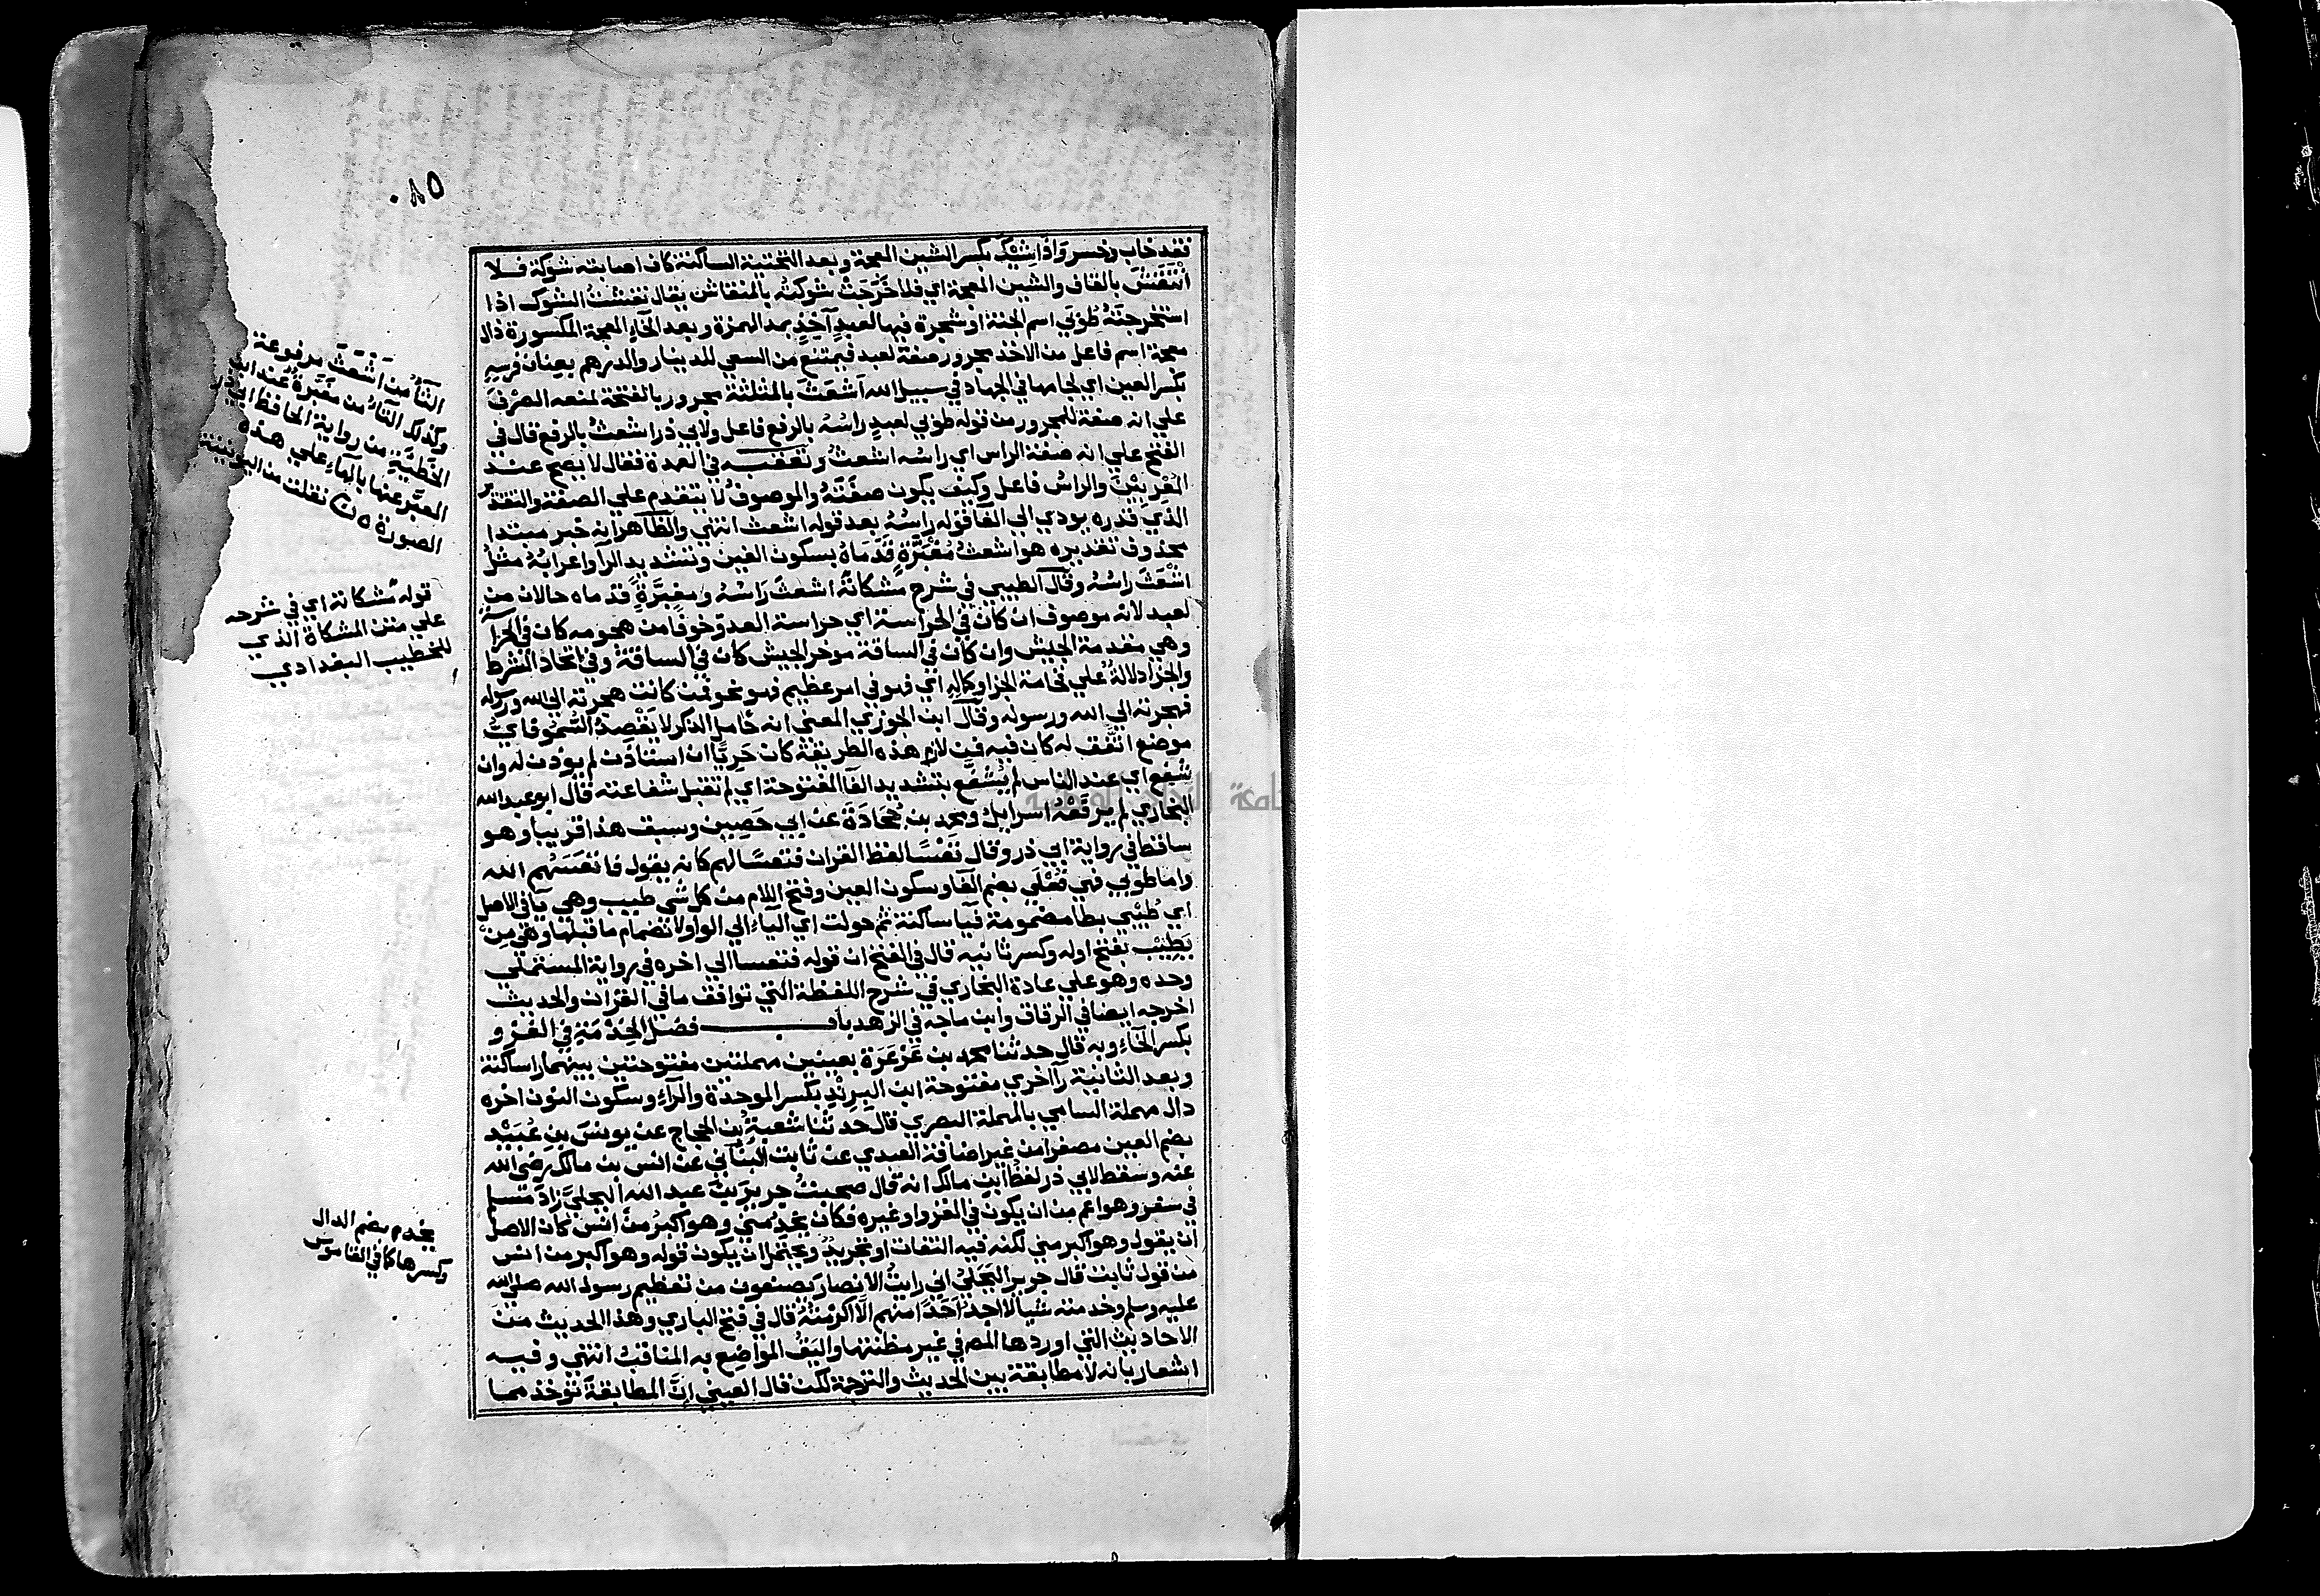 ٥٨٠
فقد خاب وخسر وَاِذَا شِيْكَ بكسر الشين المعجمة وبعد التحتية الساكنة كاف اصابته شوكة فلا
انْتَقَشَ بالقاف والشين المعجمة اي فلا خَرَجَتْ شوكته بالمنقاش يقال نقشت الشوك اذا
استخرجتَهُ طُوْبَي اسم الجنة او شجرة فيها لعبدٍ آخِذٍ بمد الهمزة وبعد الخاءِ المعجمة المكسورة ذال
معجمة اسم فاعل من الاخذ مجرور صفة لعبد فيمتنع من السعي للدينار والدرهم بعِنَان فرسِهِ
بكسر العين اي لجامها في الجهاد في سبيل الله اَشعَثَ بالمثلثة مجرور بالفتحة لمنعه الصَّرْفَ
علي انه صفة للمجرور من قوله طوبي لعبدٍ رَاسُهُ بالرفع فاعل ولابي ذر اشعثُ بالرفع قال في
الفتح علي انه صفة الراس اي راسُه اشعثُ وتعقبه في العمدة فقال لا يصح عند
المُعْرِبِيْنَ والراسُ فاعل وكيف يكون صفَتَهُ والموصوفُ لا يتقدم علي الصفة والتقدير
الذي قدره يودي الي الغا قوله راسُهُ بعد قوله اشعث انتهي والظاهر انه خبر مبتدا
محذوف تقديره هو اشعثُ مُغْبَرَّةٍ قَدَمَاهُ بسكون الغين وتشديد الرا واعرابُهُ مثلُ
اشْعَثَ راسُهُ وقال الطيبي في شرح مشكاتهُ اشعثَ رَاسُهُ ومغبَرَّةٍ قدماه حالان من
لعبد لانه موصوف ان كان في الحِراسةِ اي حراسة العدوّ خوفًا من هجومه كان في الحراسة
وهي مقدمة الجيش وان كان في الساقة موخر الجيش كان في الساقة وفي اتحاد الشرط
والجزا دلالةٌ علي فخامة الجزا وكماله اي فهو في امر عظيم فهو نحو فمن كانت هجرته الي الله ورسوله
فهجرته الي الله ورسوله وقال ابن الجوزي المعني انه خامل الذكر لا يَقْصِدُ السُّمُو فاي
موضع اتَّفق له كان فيه فمن لازم هذه الطريقة كان حَرِيًّا ان استاذَن لم يوذن له وان
شفع اي عند الناس لم يُشَفَّع بتشديد الفا المفتوحة اي لم تقبل شفاعته قال ابو عبد الله
البخاري لم يرفَعْهُ اسراييل ومحمد بن جُحَادَةَ عَنْ ابي حَصِيين وسبق هذا قريبا وهو
ساقط في رواية ابي ذر وقال تَعْسًا لفظ القران فتعسًا لهم كانه يقول فاتعسَهُم الله
واما طوبي فهي فُعْلَي بضم الفا وسكون العين وفتح اللام من كل شي طيب وهي يآ في الاصل
اي طُيْبَي بطا مضمومة فيا ساكنة ثم حولت اي الياءُ الي الواو لانضمام ما قبلها وهي مِنْ
يَطِيْبُ بفتح اوله وكسر ثانيه قال في الفتح ان قوله فتعسا الي اخره في رواية المستملي
وحده وهو علي عادة البخاري في شرح اللفظة التي توافق ما في القران والحديث
اخرجه ايضا في الرقاق وابن ماجه في الزهد باب فَضْلُ الخِدْمَةِ في الغَزْو
بكسر الخاءِ وبه قال حدثنا محمد بن عَرْعَرَةَ بعينين مهملتين مفتوحتين بينهما را ساكنة
وبعد الثانية رآ اخري مفتوحة ابن البِرِنْدِ بكسر الموحدة والرآءِ وسكون النون اخره
دال مهملة السامي بالمهملة البصري قال حدثنا شعبةُ بن الحجاج عن يونسَ بن عُبَيْدٍ
بضم العين مصغرا من غير اضافة العبدي عن ثابت البُنَاني عن انس بن مالك رضي الله
عنه وسقط لابي ذر لفظُ ابْنِ مالك انه قال صحبتُ جريرَ بنَ عبد الله البجليَّ زاد مسلم
في سفر وهو اعم من ان يكون في الغزو او غيره فكان يخدِمُني وهو اكبرُ من انس كان الاصل
ان يقول وهو اكبر مني لكنه فيه التفات او تجريدٌ ويحتمل ان يكون قوله وهو اكبر من انس
من قول ثابت قال جرير البَجَليُ اني رايتُ الانصارَ يصنعون من تعظيم رسول الله صلي الله
عليه وسلم وخدمته شيا لا اجدُ احَدًا منهم الَّا اكرَمْتُهُ قال في فتح الباري وهذا الحديث من
الاحاديث التي اوردها المص في غير مظنتها واليَقُ المواضِع به المناقبُ انتهي وفيه
اشعار بانه لا مطابقة بين الحديث والترجمة لكن قال العيني اِنَّ المطابقةَ توخذ مما
الثَّآءُ مِنْ اَشْعَثَ مرفوعة
وكذلك التآءُ من مُغبَرَّةٌ عند ابي ذر
الحُطيَّةِ من رواية الحافظ ابي
المعبَّر عنها بالهآءِ علي هذه
الصورة ه ن نقلت من اليونينية
قوله مشكاته اي في شرحه
علي متن المشكاة الذي
للخطيب البغدادي
يخدم بضم الدال
وكسرها كما في القاموس